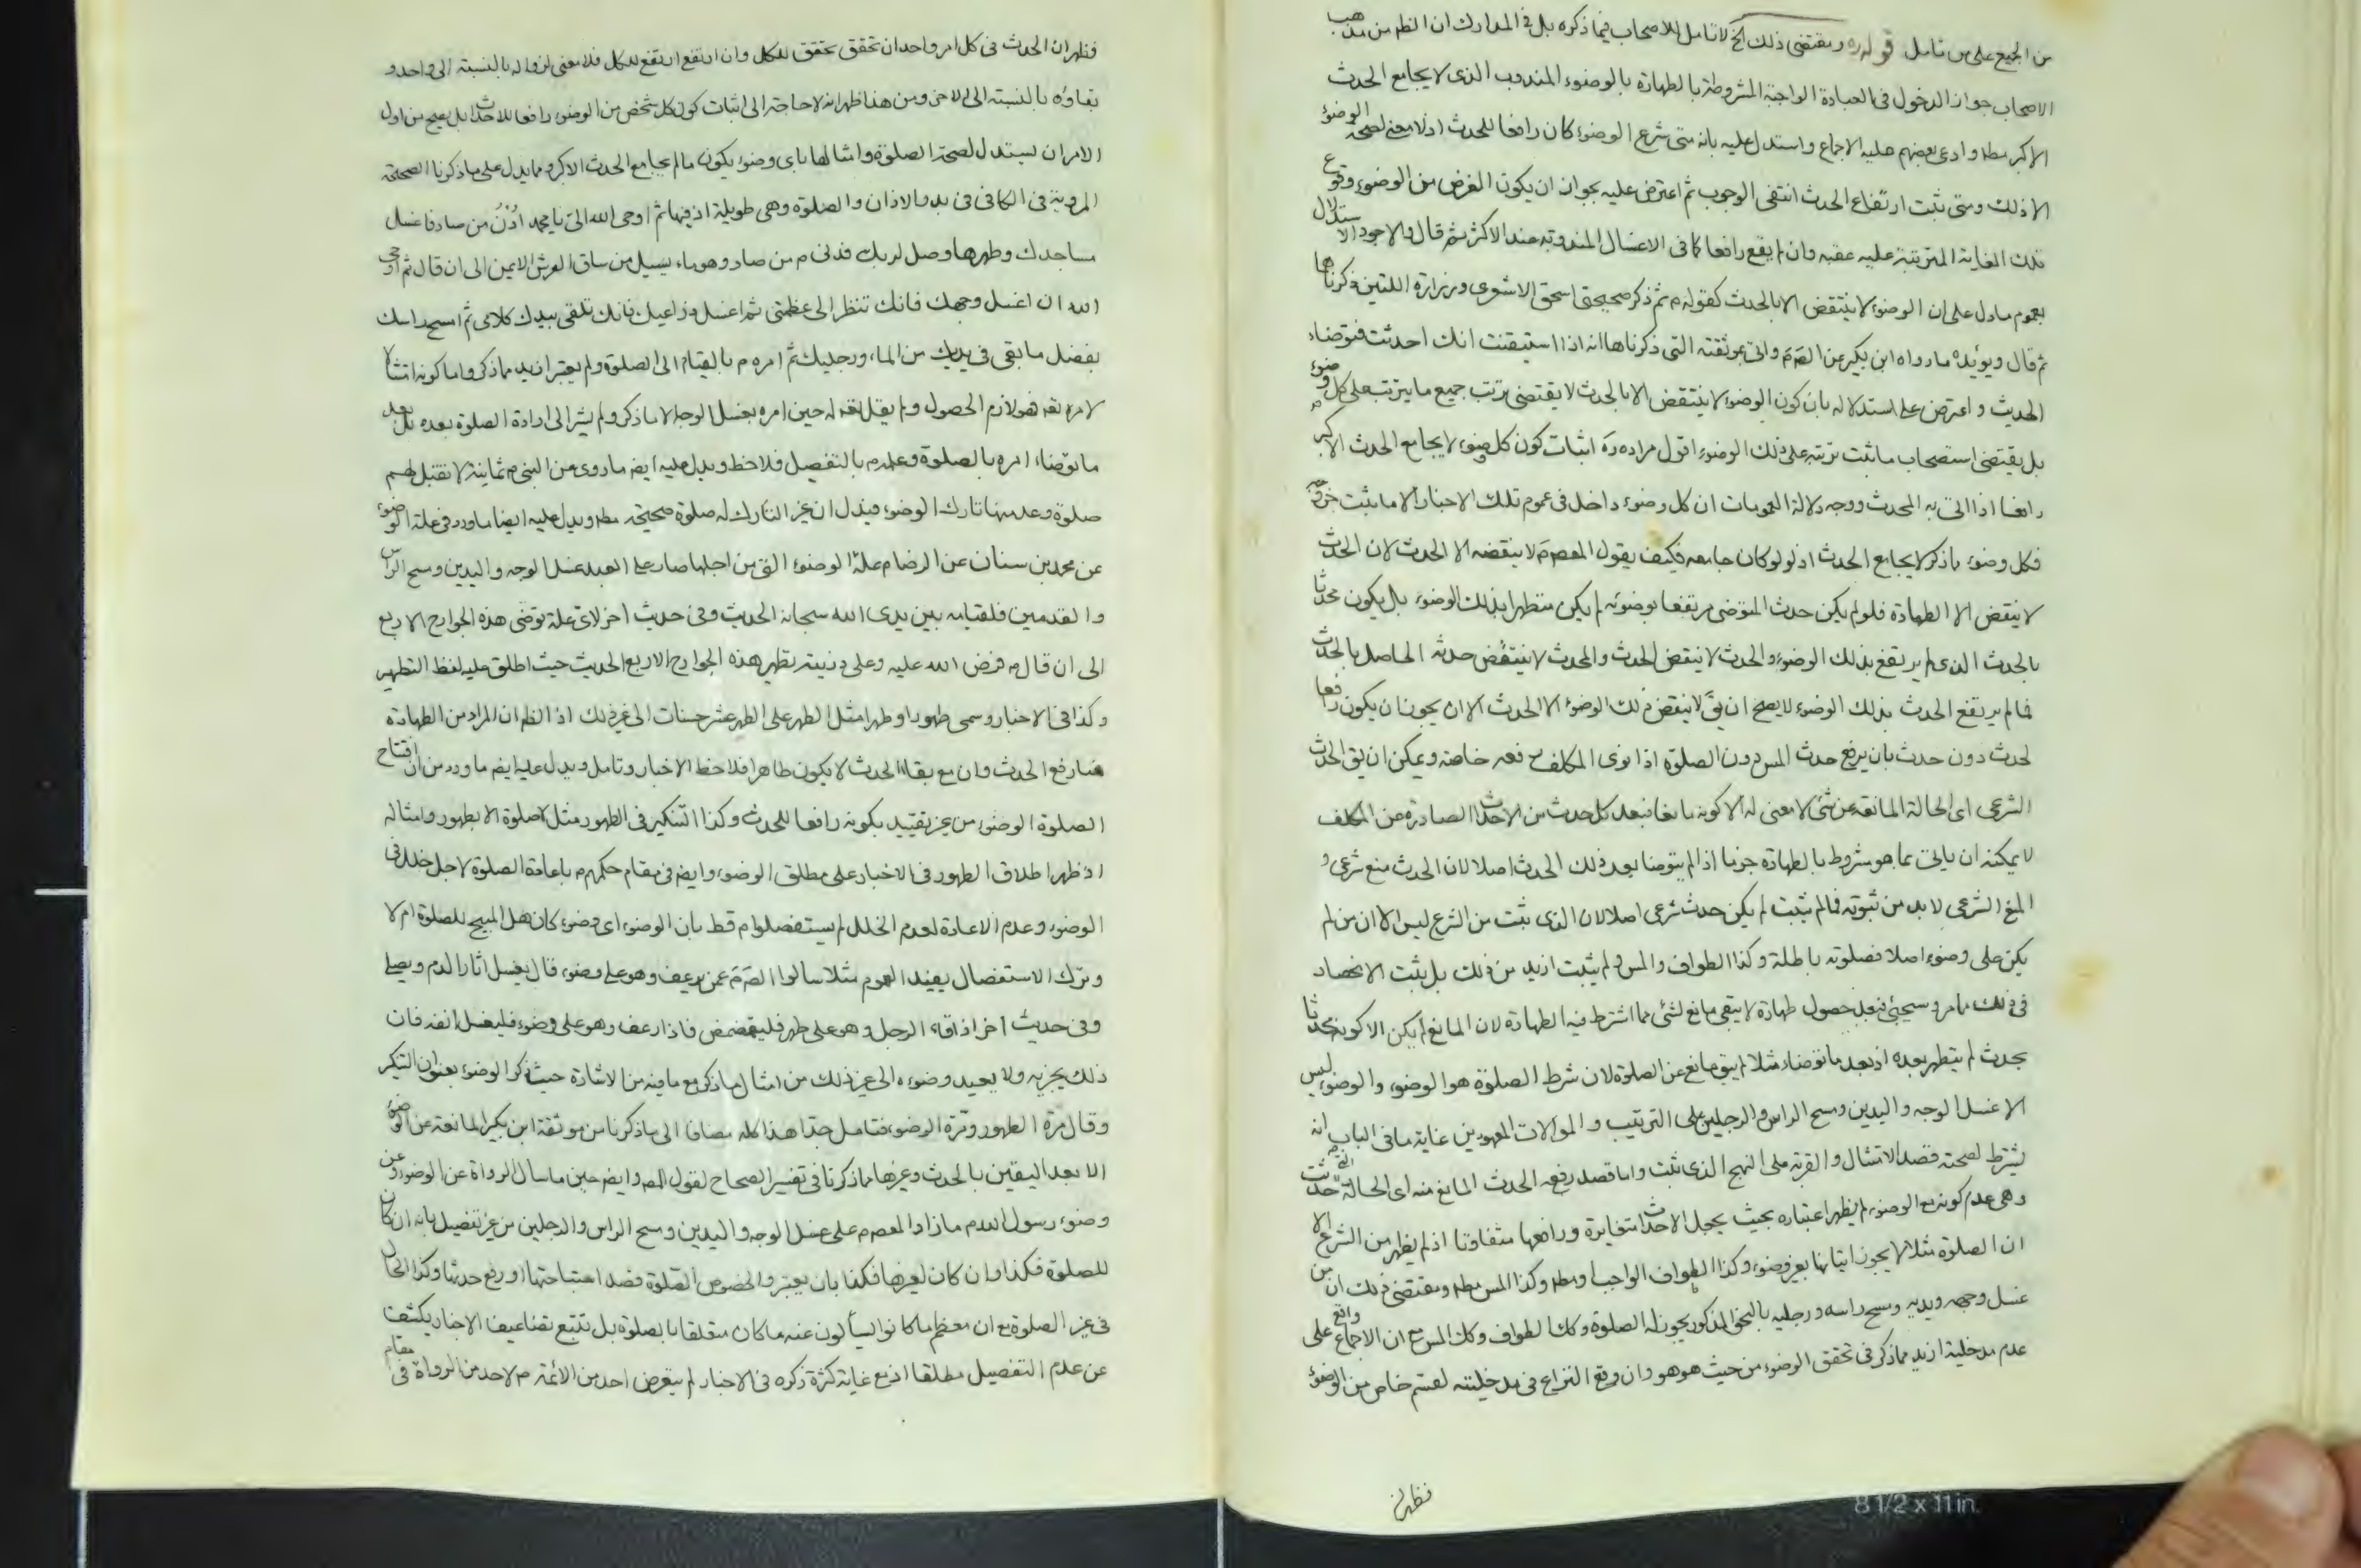 من الجميع على من تامل قوله ره ومقتضى ذلك الخ لا تامل للاصحاب فيما ذكره بل في المدارك ان الظم من مذهب
الاصحاب جواز الدخول في العبادة الواجبة المشروطة بالطهارة بالوضوء المندوب الذى لا يجامع الحدث
الاكبر مطلا وادعى بعضهم عليه الاجماع واستدل عليه بانه متى شرع الوضوء كان رافعا للحدث اذ لا معنى لصحة الوضوء
الا ذلك ومتى ثبت ارتفاع الحدث انتفى الوجوب ثم اعترض عليه بجواز ان يكون الغرض من الوضوء وقوع
تلك الغاية المترتبة عليه عقبه وان لم يقع رافعا كما في الاغسال المندوبة عند الاكثر ثم قال والاجود الاستدلال
بعموم ما دل على ان الوضوء لا ينتقض الا بالحدث كقوله م ثم ذكر صحيحتى اسحق الاشعرى وزرارة اللتين ذكرناها
ثم قال ويؤيده ما رواه ابن بكير عن الصّم واتى بموثقته التى ذكرناها انه اذا استيقنت انك احدثت فتوضاء
الحديث واعترض على استدلاله بان كون الوضوء لا ينتقض الا بالحدث لا يقتضى ترتب جميع ما يترتب على كل وضوء
بل يقتضى استصحاب ما ثبت ترتبه على ذلك الوضوء اقول مراده ره اثبات كون كل وضوء لا يجامع الحدث الاكبر
رافعا اذا اتى به المحدث ووجه دلالة العمومات ان كل وضوء داخل في عموم تلك الاخبار الا ما ثبت خروجه
فكل وضوء ما ذكر لا يجامع الحدث اذ لو لو كان جامعه فكيف يقول المعصوم لا ينقضه الا الحدث لان الحدث
لا ينقض الا الطهارة فلو لم يكن حدث المتوضى مرتفعا بوضوئه لم يكن متطهرا بذلك الوضوء بل يكون محدثا
بالحدث الذى لم يرتفع بذلك الوضوء والحدث لا ينقض الحدث والمحدث لا ينتقض حدثه الحاصل بالحدث
فما لم يرتفع الحدث بذلك الوضوء لا يصح ان يق لا ينقض ذلك الوضوء الا الحدث الا ان يجوز ان يكون رافعا
لحدث دون حدث بان يرفع حدث المس دون الصلوة اذا نوى المكلف رفعه خاصة ويمكن ان يق الحدث
الشرعى اى الحالة المانعة عن شئ لا معنى له الا كونه مانعا فبعد كل حدث من الاحداث الصادرة عن المكلف
لا يمكنه ان ياتى بما هو مشروط بالطهارة جزما اذا لم يتوضا بعد ذلك الحدث اصلا لان الحدث منع شرعى و
المنع الشرعى لا بد من ثبوته فما لم يثبت لم يكن حدث شرعى اصلا لان الذى ثبت من الشرع ليس الا ان من لم
يكن على وضوء اصلا فصلوته باطلة وكذا الطواف والمس ولم يثبت ازيد من ذلك بل يثبت الانحصار
في ذلك مما مر وسيجئ فبعد حصول طهارة لا يبقى مانع لشئ مما اشترط فيه الطهارة لان المانع لم يكن الا كونه محدثا
بحدث لم يتطهر بعده اذ بعد ما توضاء مثلا لم يبق مانع عن الصلوة لان شرط الصلوة هو الوضوء والوضوء ليس
الا غسل الوجه واليدين ومسح الراس والرجلين على الترتيب والموالات المعهودين غاية ما في الباب انه
يشترط لصحته قصد الامتثال والقربة على النهج الذى ثبت واما قصد رفعه الحدث المانع منه اى الحالة التى حدثت
وهى عدم كونه مع الوضوء لم يظهر اعتباره بحيث يجعل الاحداث متغايرة ورافعها متفاوتا اذ لم يظهر من الشرع الا
ان الصلوة مثلا لا يجوز اتيانها بغير وضوء وكذا الطواف الواجب او مطم وكذا المس مطم ومقتضى ذلك ان من
غسل وجهه ويديه ومسح راسه ورجليه بالنحو المذكور يجوز له الصلوة وكذا الطواف وكذا المس مع ان الاجماع واقع على
عدم مدخلية ازيد مما ذكر في تحقق الوضوء من حيث هو هو وان وقع النزاع في مدخليته لقسم خاص من الوضوء
فظهر ان
فظهر ان الحدث في كل امر واحد ان تحقق تحقق للكل وان ارتفع ارتفع للكل فلا معنى لزواله بالنسبة الى واحد و
بقاؤه بالنسبة الى الاخر ومن هنا ظهر انه لا حاجة الى اثبات كون كل شخص من الوضوء رافعا للاحداث بل يصح من اول
الامر ان يستدل لصحة الصلوة وامثالها باى وضوء يكون ما لم يجامع الحدث الاكبر ومما يدل على ما ذكرنا الصحيحة
المروية في الكافى في بدو الاذان والصلوة وهى طويلة اذ فيها ثم اوحى الله الى يا محمد ادن من صاد فاغسل
مساجدك وطهرها وصل لربك فدنى م من صاد وهو ماء يسيل من ساق العرش الايمن الى ان قال ثم اوحى
الله ان اغسل وجهك فانك تنظر الى عظمتى ثم اغسل ذراعيك فانك تلقى بيدك كلامى ثم امسح راسك
بفضل ما بقى في يديك من الماء ورجليك ثم امره م بالقيام الى الصلوة ولم يعتبر ازيد مما ذكر واما كونه امتثالا
لامره تع فهو لازم الحصول ولم يقل تع له حين امره بغسل الوجه الا ما ذكر ولم يشر الى ارادة الصلوة بعده بل بعد
ما توضاء امره بالصلوة وعلمه م بالتفصيل فلاحظ ويدل عليه ايضم ما روى عن النبى م ثمانية لا تقبل لهم
صلوة وعد منها تارك الوضوء فيدل ان غير التارك له صلوة صحيحة مطم ويدل عليه ايضا ما ورد في علة الوضوء
عن محمد بن سنان عن الرضا م علة الوضوء التى من اجلها صار على العبد غسل الوجه واليدين ومسح الراس
والقدمين فلقيامه بين يدى الله سبحانه الحديث وفى حديث اخر لاى علة توضى هذه الجوارح الاربع
الى ان قال م فرض الله عليه وعلى ذريته تطهير هذه الجوارح الاربع الحديث حيث اطلق عليه لفظ التطهير
وكذا في الاخبار وسمى طهورا وطهرا مثل الطهر على الطهر عشر حسنات الى غير ذلك اذ الظم ان المراد من الطهارة
هنا رفع الحدث وان مع بقاء الحدث لا يكون طاهرا فلاحظ الاخبار وتامل ويدل عليه ايضم ما ورد من ان افتتاح
الصلوة الوضوء من غير تقييد بكونه رافعا للحدث وكذا التنكير في الطهور مثل لا صلوة الا بطهور وامثاله
اذ ظهر اطلاق الطهور في الاخبار على مطلق الوضوء وايضم في مقام حكمهم م باعادة الصلوة لاجل خلل في
الوضوء وعدم الاعادة لعدم الخلل لم يستفصلوا م قط بان الوضوء اى وضوء كان هل المبيح للصلوة ام لا
وترك الاستفصال يفيد العموم مثلا سالوا الصّم عمن يرعف وهو على وضوء قال يغسل اثار الدم ويصلى
وفى حديث اخر اذا قاء الرجل وهو على طهر فليتمضمض فاذا رعف وهو على وضوء فليغسل انفه فان
ذلك يجزيه ولا يعيد وضوءه الى غير ذلك من امثال ما ذكر مع ما فيه من الاشارة حيث ذكر الوضوء بعنوان التنكير
وقال مرة الطهور وترة الوضوء فتامل جدا هذا كله مضافا الى ما ذكرنا من موثقة ابن بكير المانعة عن الوضوء
الا بعد اليقين بالحدث وغيرها مما ذكرنا في تفسير الصحاح لقول المصم وايضم حين ما سال الرواة عن الوضوء وعن
وضوء رسول الله م ما زاد المعصوم م على غسل الوجه واليدين ومسح الراس والرجلين من غير تفصيل بانه ان كان
للصلوة فكذا وان كان لغيرها فكذا بان يعتبر والخصوص الصلوة قصد استباحتها او رفع حدثها وكذا الحال
في غير الصلوة مع ان معظم ما كانوا يسألون عنه ما كان متعلقا بالصلوة بل تتبع تضاعيف الاخبار يكشف
عن عدم التفصيل مطلقا اذ مع غاية كثرة ذكره في الاخبار لم يتعرض احد من الائمة م لاحد من الرواة في مقام
8 1/2 x 11 in.